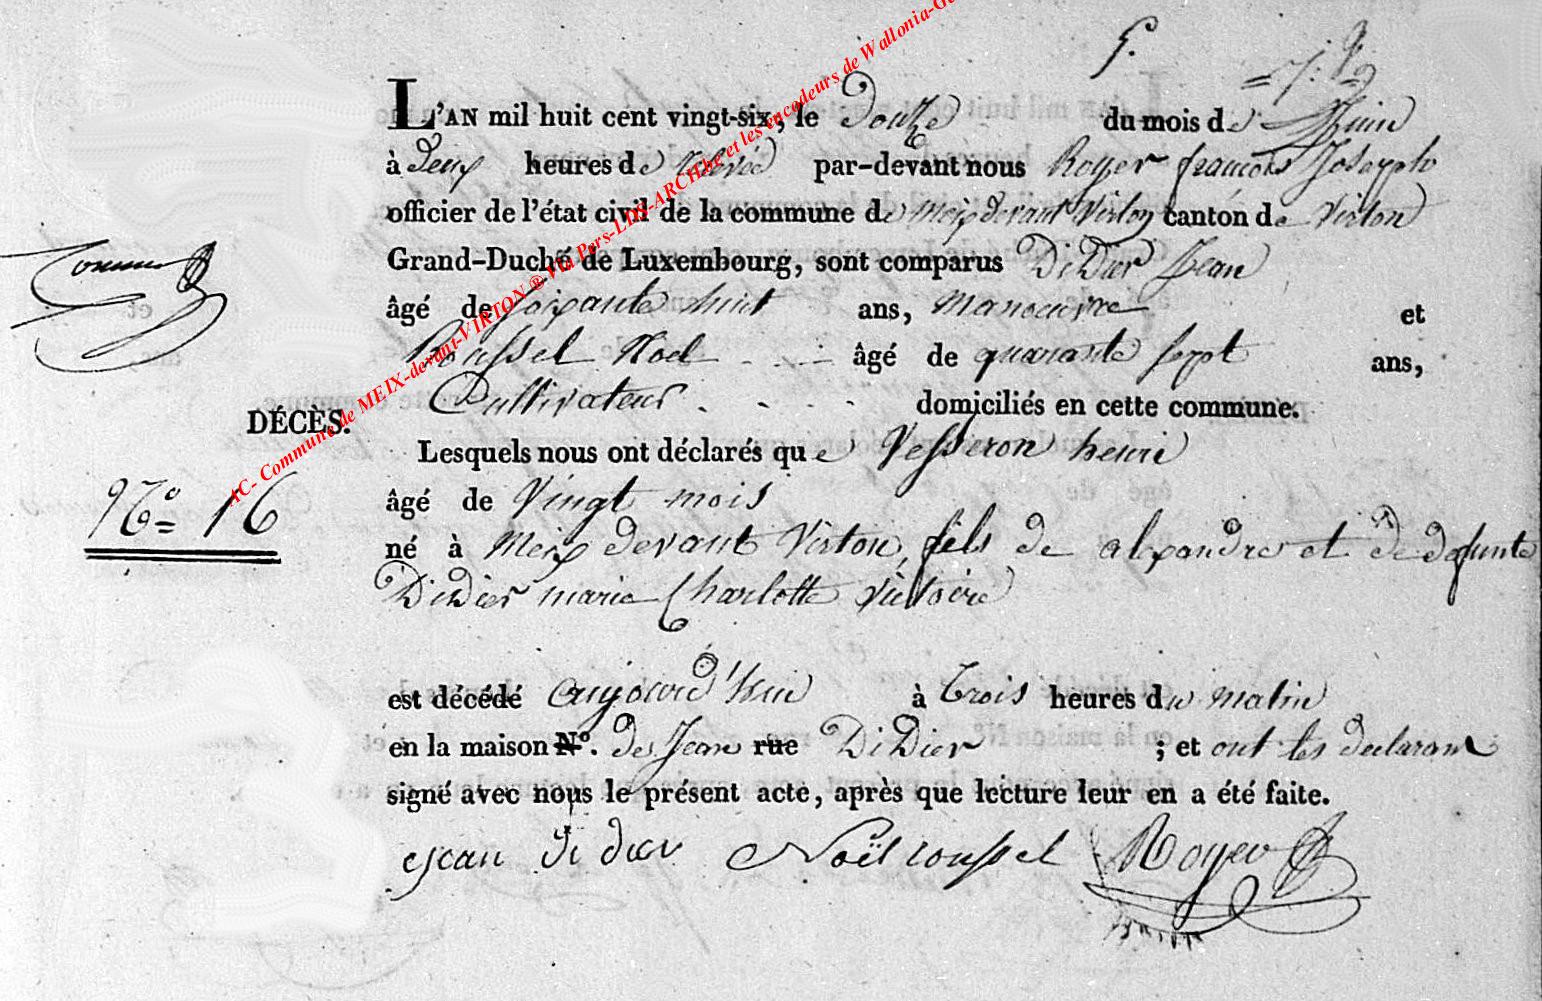 5.
L'AN mil huit cent vingt-six, le Douze du mois de Juin
à Deux heures de relevée par-devant nous Royer françois Joseph
officier de l'état civil de la commune de Meix devant Virton canton de Virton
Grand-Duché de Luxembourg, sont comparus Didier Jean
âgé de soixante huit ans, manoeuvre et
Roussel Noel âgé de quarante sept ans,
Cultivateur domiciliés en cette commune.
DÉCÈS.
Lesquels nous ont déclarés que Vesseron henri
N.º 16
âgé de Vingt mois
né à Meix devant Virton, fils de alexandre et de defunte
Didier marie Charlotte Victoire
est décédé aujourd'hui à trois heures du matin
en la maison Nº. de Jean rue Didier ; et ont les declarant
signé avec nous le présent acte, après que lecture leur en a été faite.
jean di dier Noël roussel Royer
AC- Commune de MEIX-devant-VIRTON ® Via Pers-LDS-ARCHbe et les encodeurs de Wallonia-G